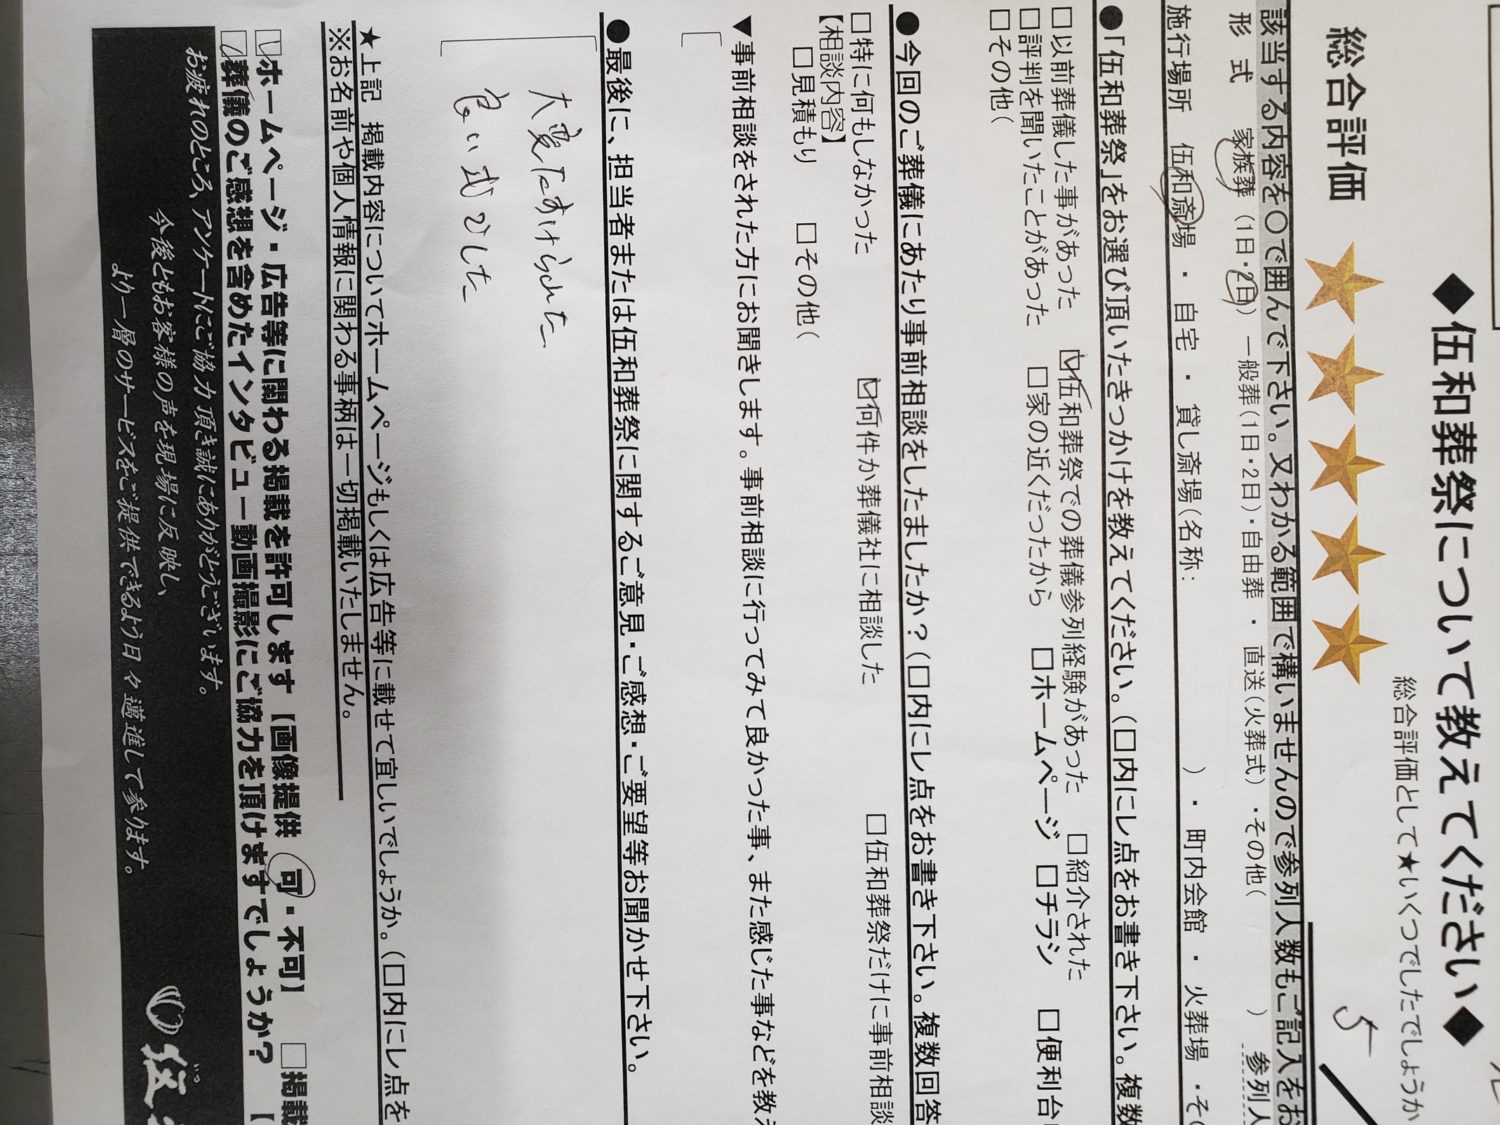 ◆伍和葬祭について教えてください◆
総合評価として★いくつでしたでしょうか
総合評価 ★★★★★ 5
該当する内容を○で囲んで下さい。又わかる範囲で構いませんので参列人数もご記入をお
形 式 家族葬 (1日・2日) 一般葬(1日・2日)・自由葬 ・ 直送(火葬式) ・その他( ) 参列人
施行場所 伍和斎場 ・ 自宅 ・ 貸し斎場(名称: ) ・ 町内会館 ・ 火葬場 ・そ
●「伍和葬祭」をお選び頂いたきっかけを教えてください。(□内にレ点をお書き下さい。複数
□以前葬儀した事があった ☑伍和葬祭での葬儀参列経験があった □紹介された
□評判を聞いたことがあった □家の近くだったから □ホームページ □チラシ □便利台
□その他(
●今回のご葬儀にあたり事前相談をしたましたか？(□内にレ点をお書き下さい。複数回答
□特に何もしなかった ☑何件か葬儀社に相談した □伍和葬祭だけに事前相談
【相談内容】
□見積もり □その他(
▼事前相談をされた方にお聞きします。事前相談に行ってみて良かった事、また感じた事などを教え
●最後に、担当者または伍和葬祭に関するご意見・ご感想・ご要望等お聞かせ下さい。
大変たすけられた
良い式でした
★上記 掲載内容についてホームページもしくは広告等に載せて宜しいでしょうか。(□内にレ点を
※お名前や個人情報に関わる事柄は一切掲載いたしません。
☑ホームページ・広告等に関わる掲載を許可します【画像提供 可・不可】 □掲載
☑葬儀のご感想を含めたインタビュー動画撮影にご協力を頂けますでしょうか？【
お疲れのところ、アンケートにご協力頂き誠にありがとうございます。
今後ともお客様の声を現場に反映し、
より一層のサービスをご提供できるよう日々邁進して参ります。